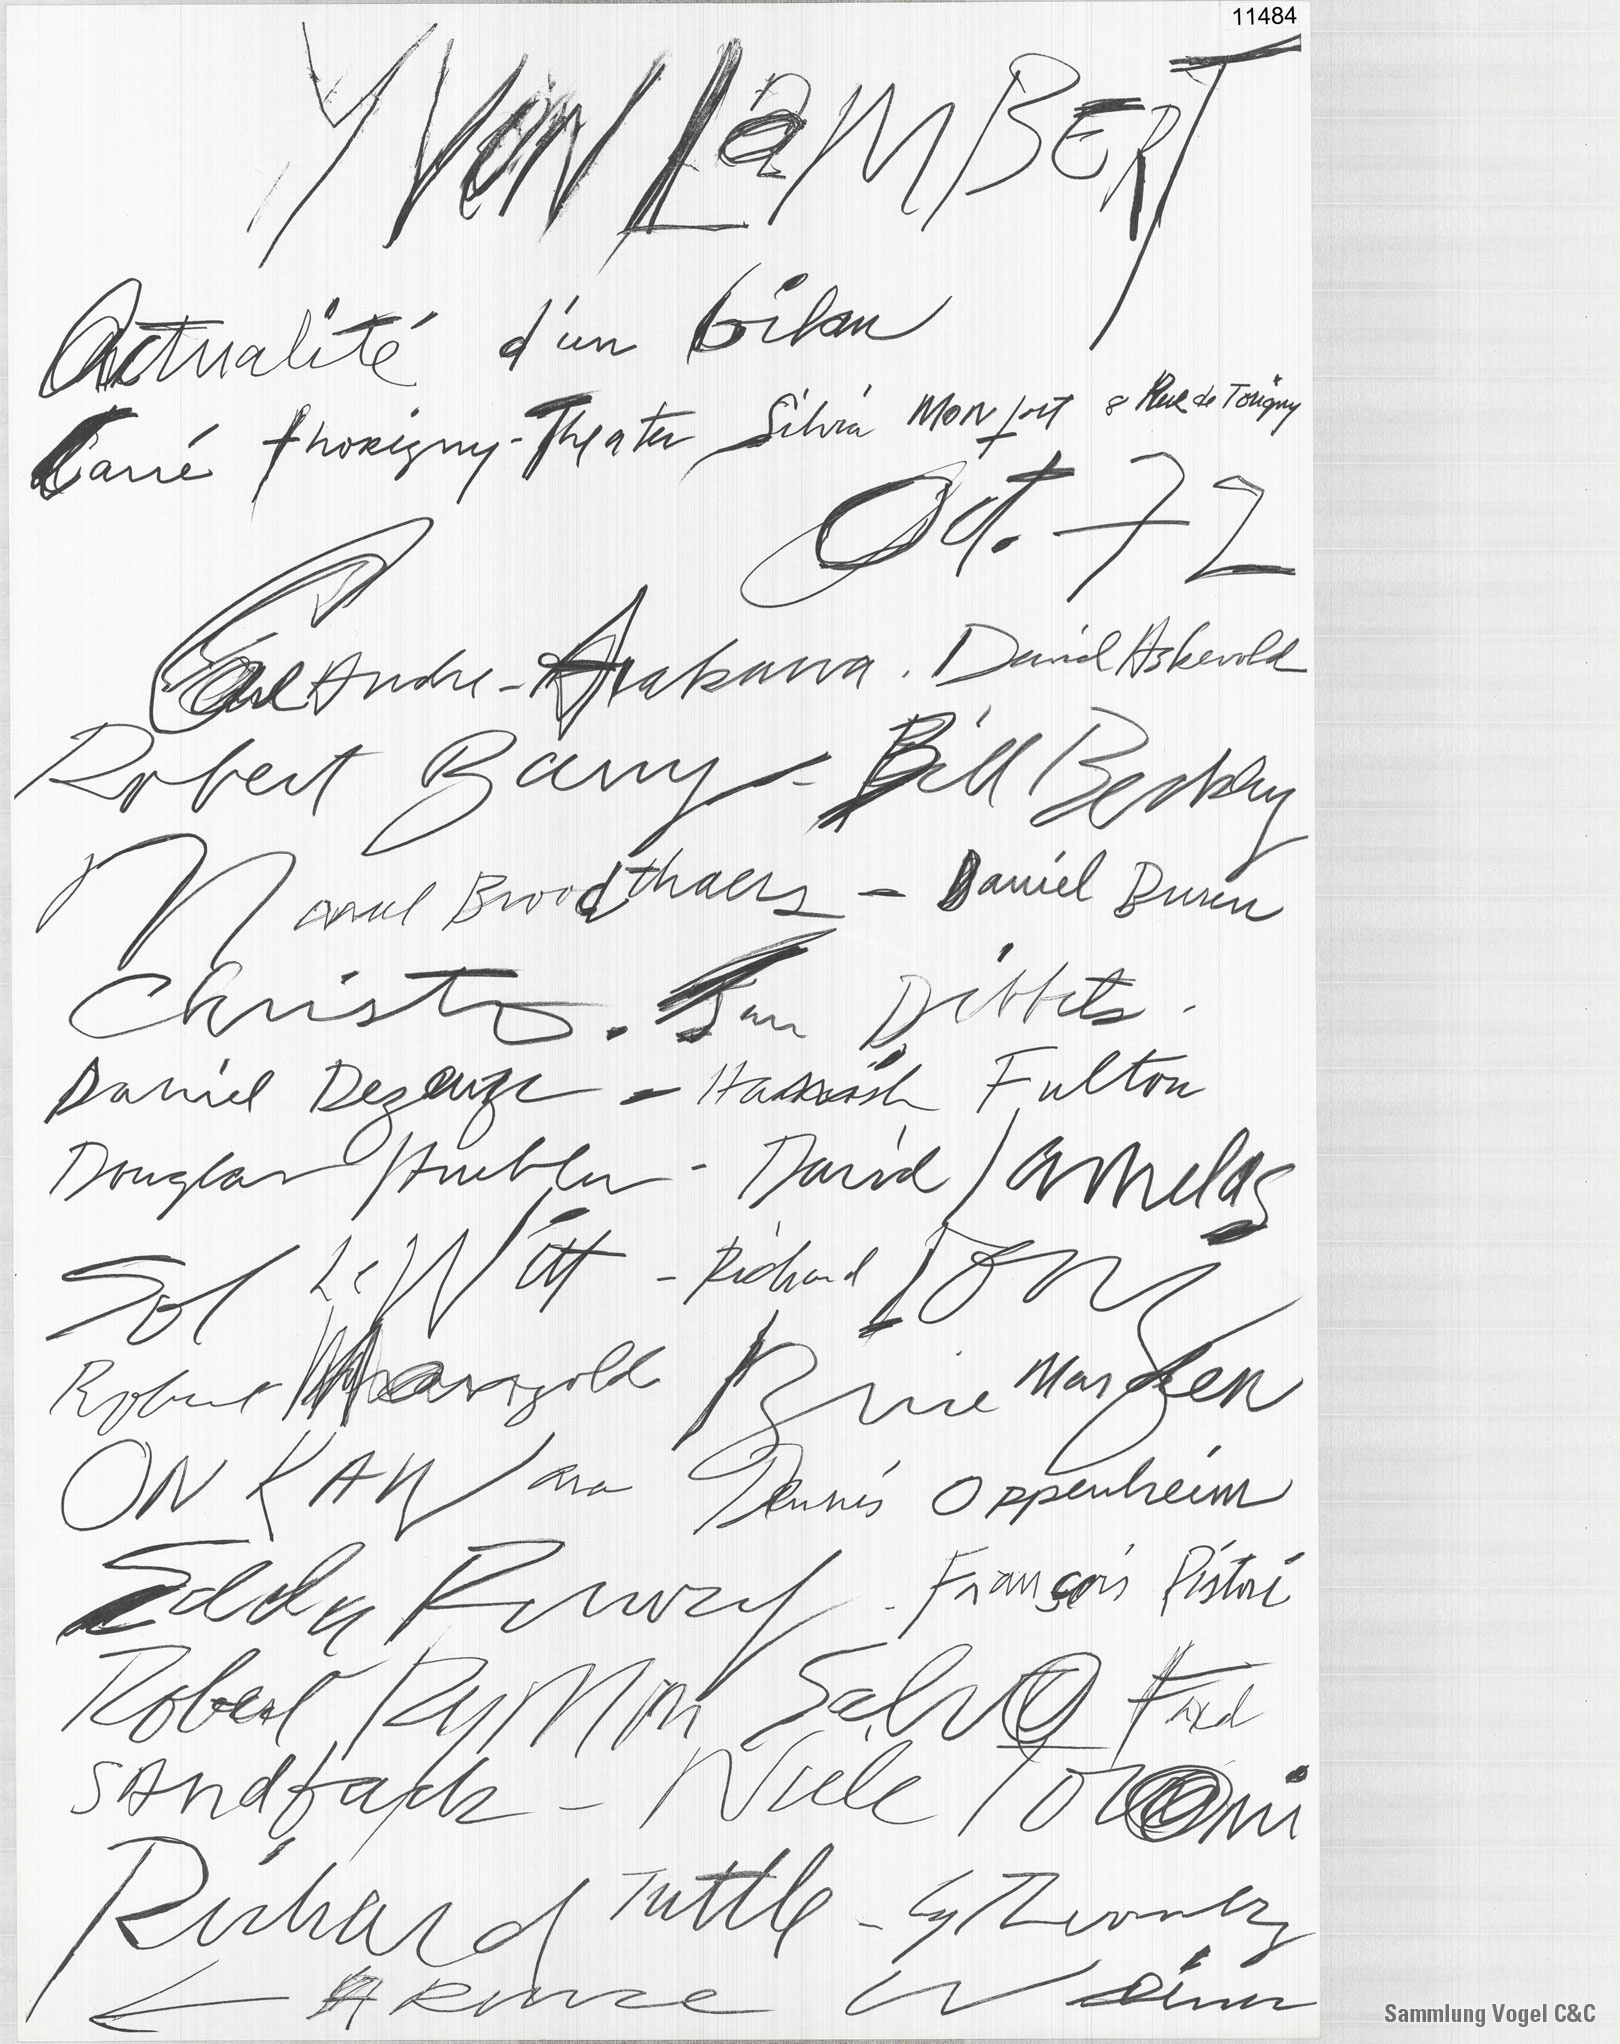 11484
YVON LAMBERT
Actualité d'un bilan
Carré Thorigny-Theater Silvia Monfort 8 Rue de Torigny
Oct. 72
Carl Andre - Arakawa . David Askevold
Robert Barry - Bill Beckley
Marcel Broodthaers - Daniel Buren
Christo . Jan Dibbets .
Daniel Dezeuze - Hamish Fulton
Douglas Huebler - David Lamelas
Sol LeWitt - Richard Long
Robert Mangold Brice Marden
ON KAWara Dennis Oppenheim
Edda Renouf - François Ristori
Robert Ryman Salvo Fred
SAndback - Niele Toroni
Richard Tuttle - Cy Twombly
Weiner
Sammlung Vogel C&C